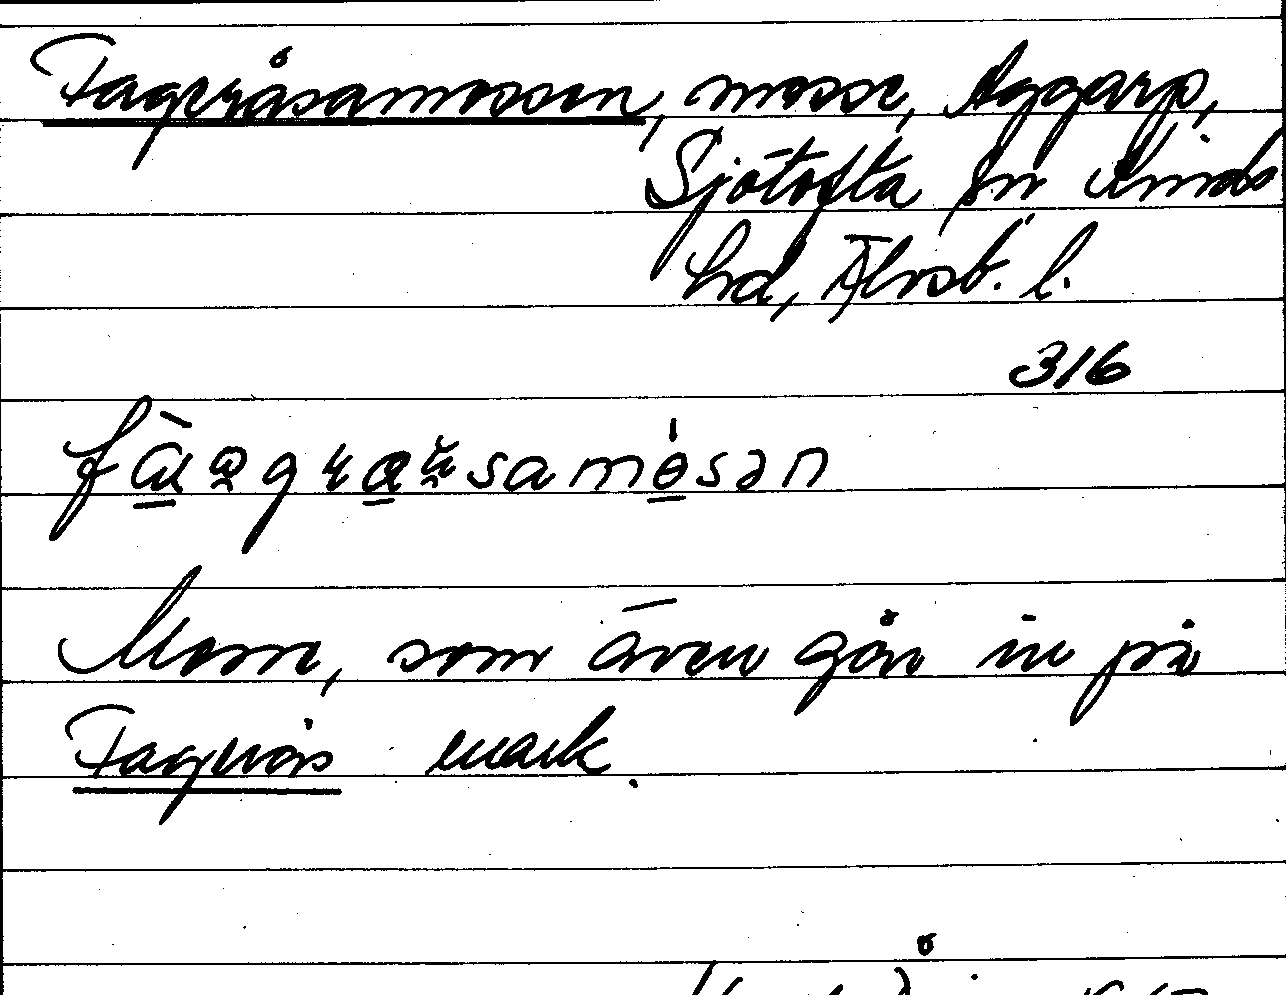 Fageråsamossen, mosse, Aggarp,
Sjötofta sn Kinds
hd, Älvsb. l.
316
Mosse, som även går in på
Fagerås mark.